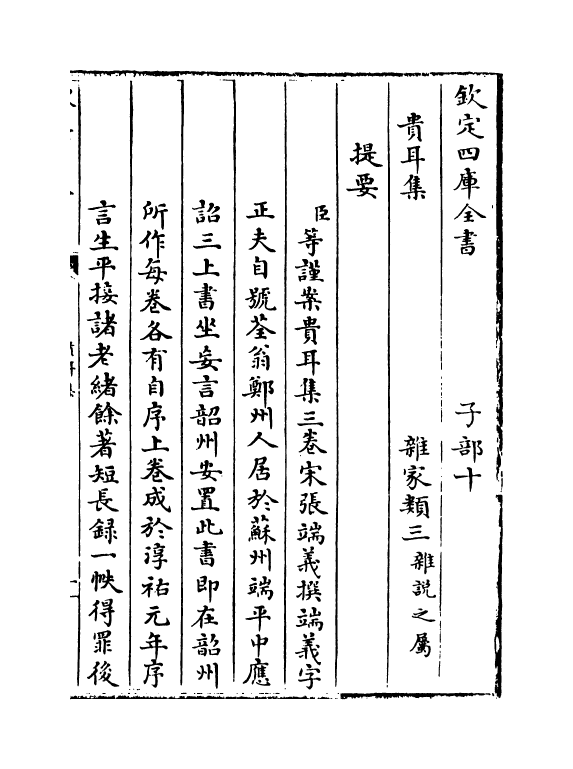 欽定四庫全書　子部十
貴耳集　雜家類三雜説之屬
提要
臣等謹案貴耳集三卷宋張端義撰端義字
正夫自號荃翁鄭州人居於蘇州端平中應
詔三上書坐妄言韶州安置此書即在韶州
所作每卷各有自序上卷成於淳祐元年序
言生平接諸老緒餘著短長録一帙得罪後